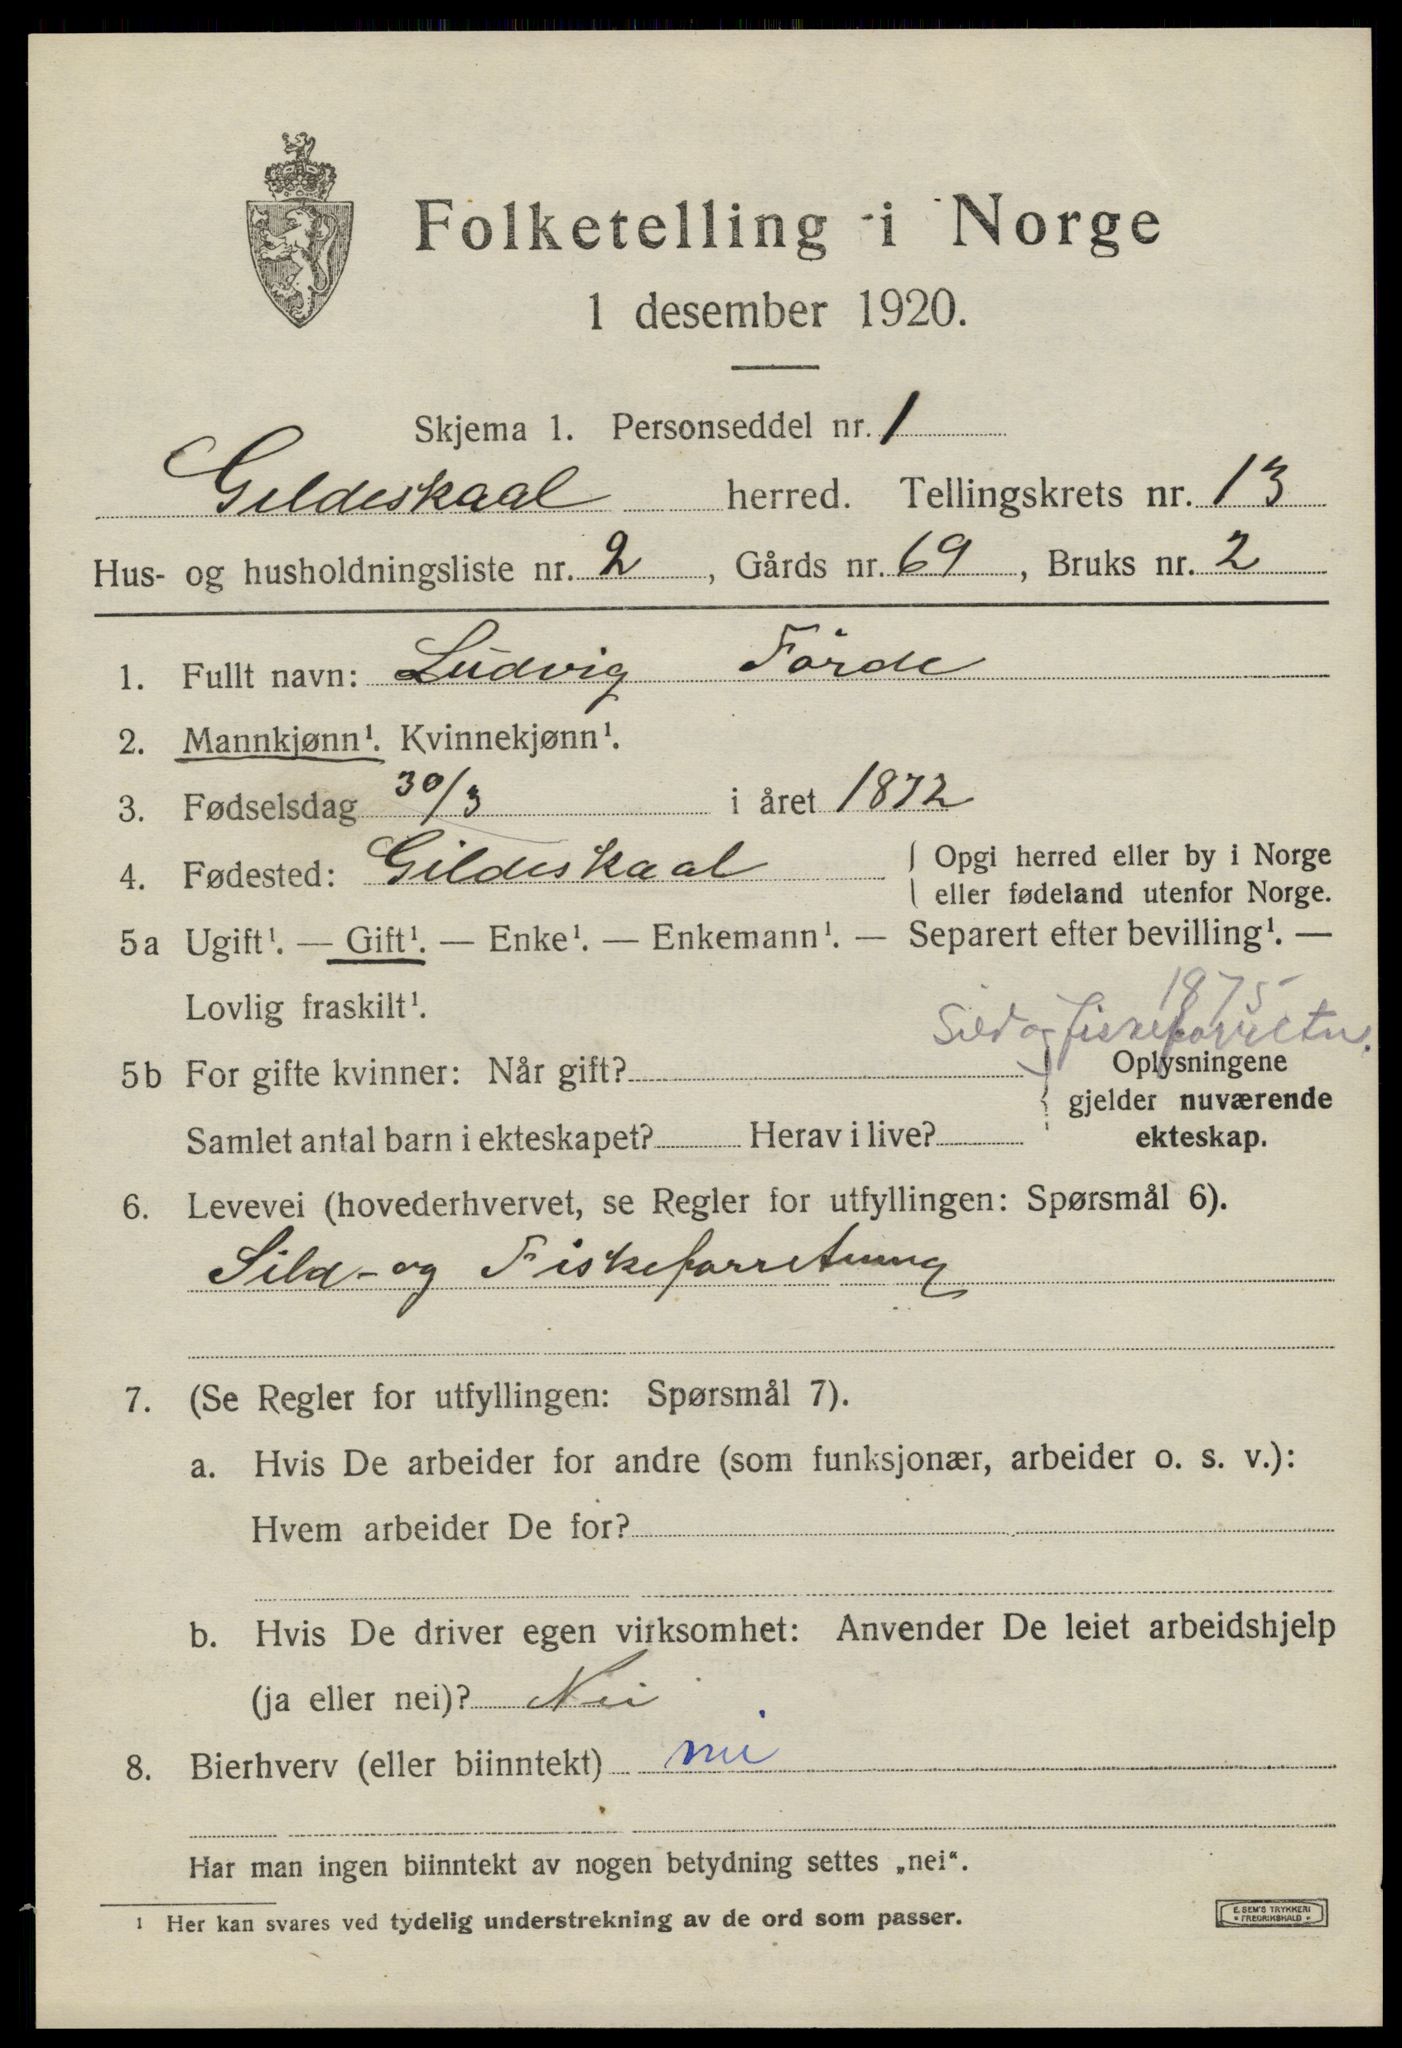 Folketelling i Norge
1 desember 1920.
Skjema 1. Personseddel nr. 1
Gildeskaal herred. Tellingskrets nr. 13
Hus- og husholdningsliste nr. 2, Gårds nr. 69, Bruks nr. 2
1. Fullt navn: Ludvig Førde
2. Mannkjønn¹. Kvinnekjønn¹.
3. Fødselsdag 30/3 i året 1872
4. Fødested: Gildeskaal { Opgi herred eller by i Norge
eller fødeland utenfor Norge.
5a Ugift¹. — Gift¹. — Enke¹. — Enkemann¹. — Separert efter bevilling¹. —
Lovlig fraskilt¹.
1875
Sild og fiskeforretn.
5b For gifte kvinner: Når gift? { Oplysningene
gjelder nuværende
Samlet antal barn i ekteskapet? Herav i live? ekteskap.
6. Levevei (hovederhvervet, se Regler for utfyllingen: Spørsmål 6).
Sild- og Fiskeforretning
7. (Se Regler for utfyllingen: Spørsmål 7).
a. Hvis De arbeider for andre (som funksjonær, arbeider o. s. v.):
Hvem arbeider De for?
b. Hvis De driver egen virksomhet: Anvender De leiet arbeidshjelp
(ja eller nei)? Nei
8. Bierhverv (eller biinntekt) nei
Har man ingen biinntekt av nogen betydning settes „nei“.
¹ Her kan svares ved tydelig understrekning av de ord som passer.
E. SEM'S TRYKKERI
* FREDRIKSHALD *